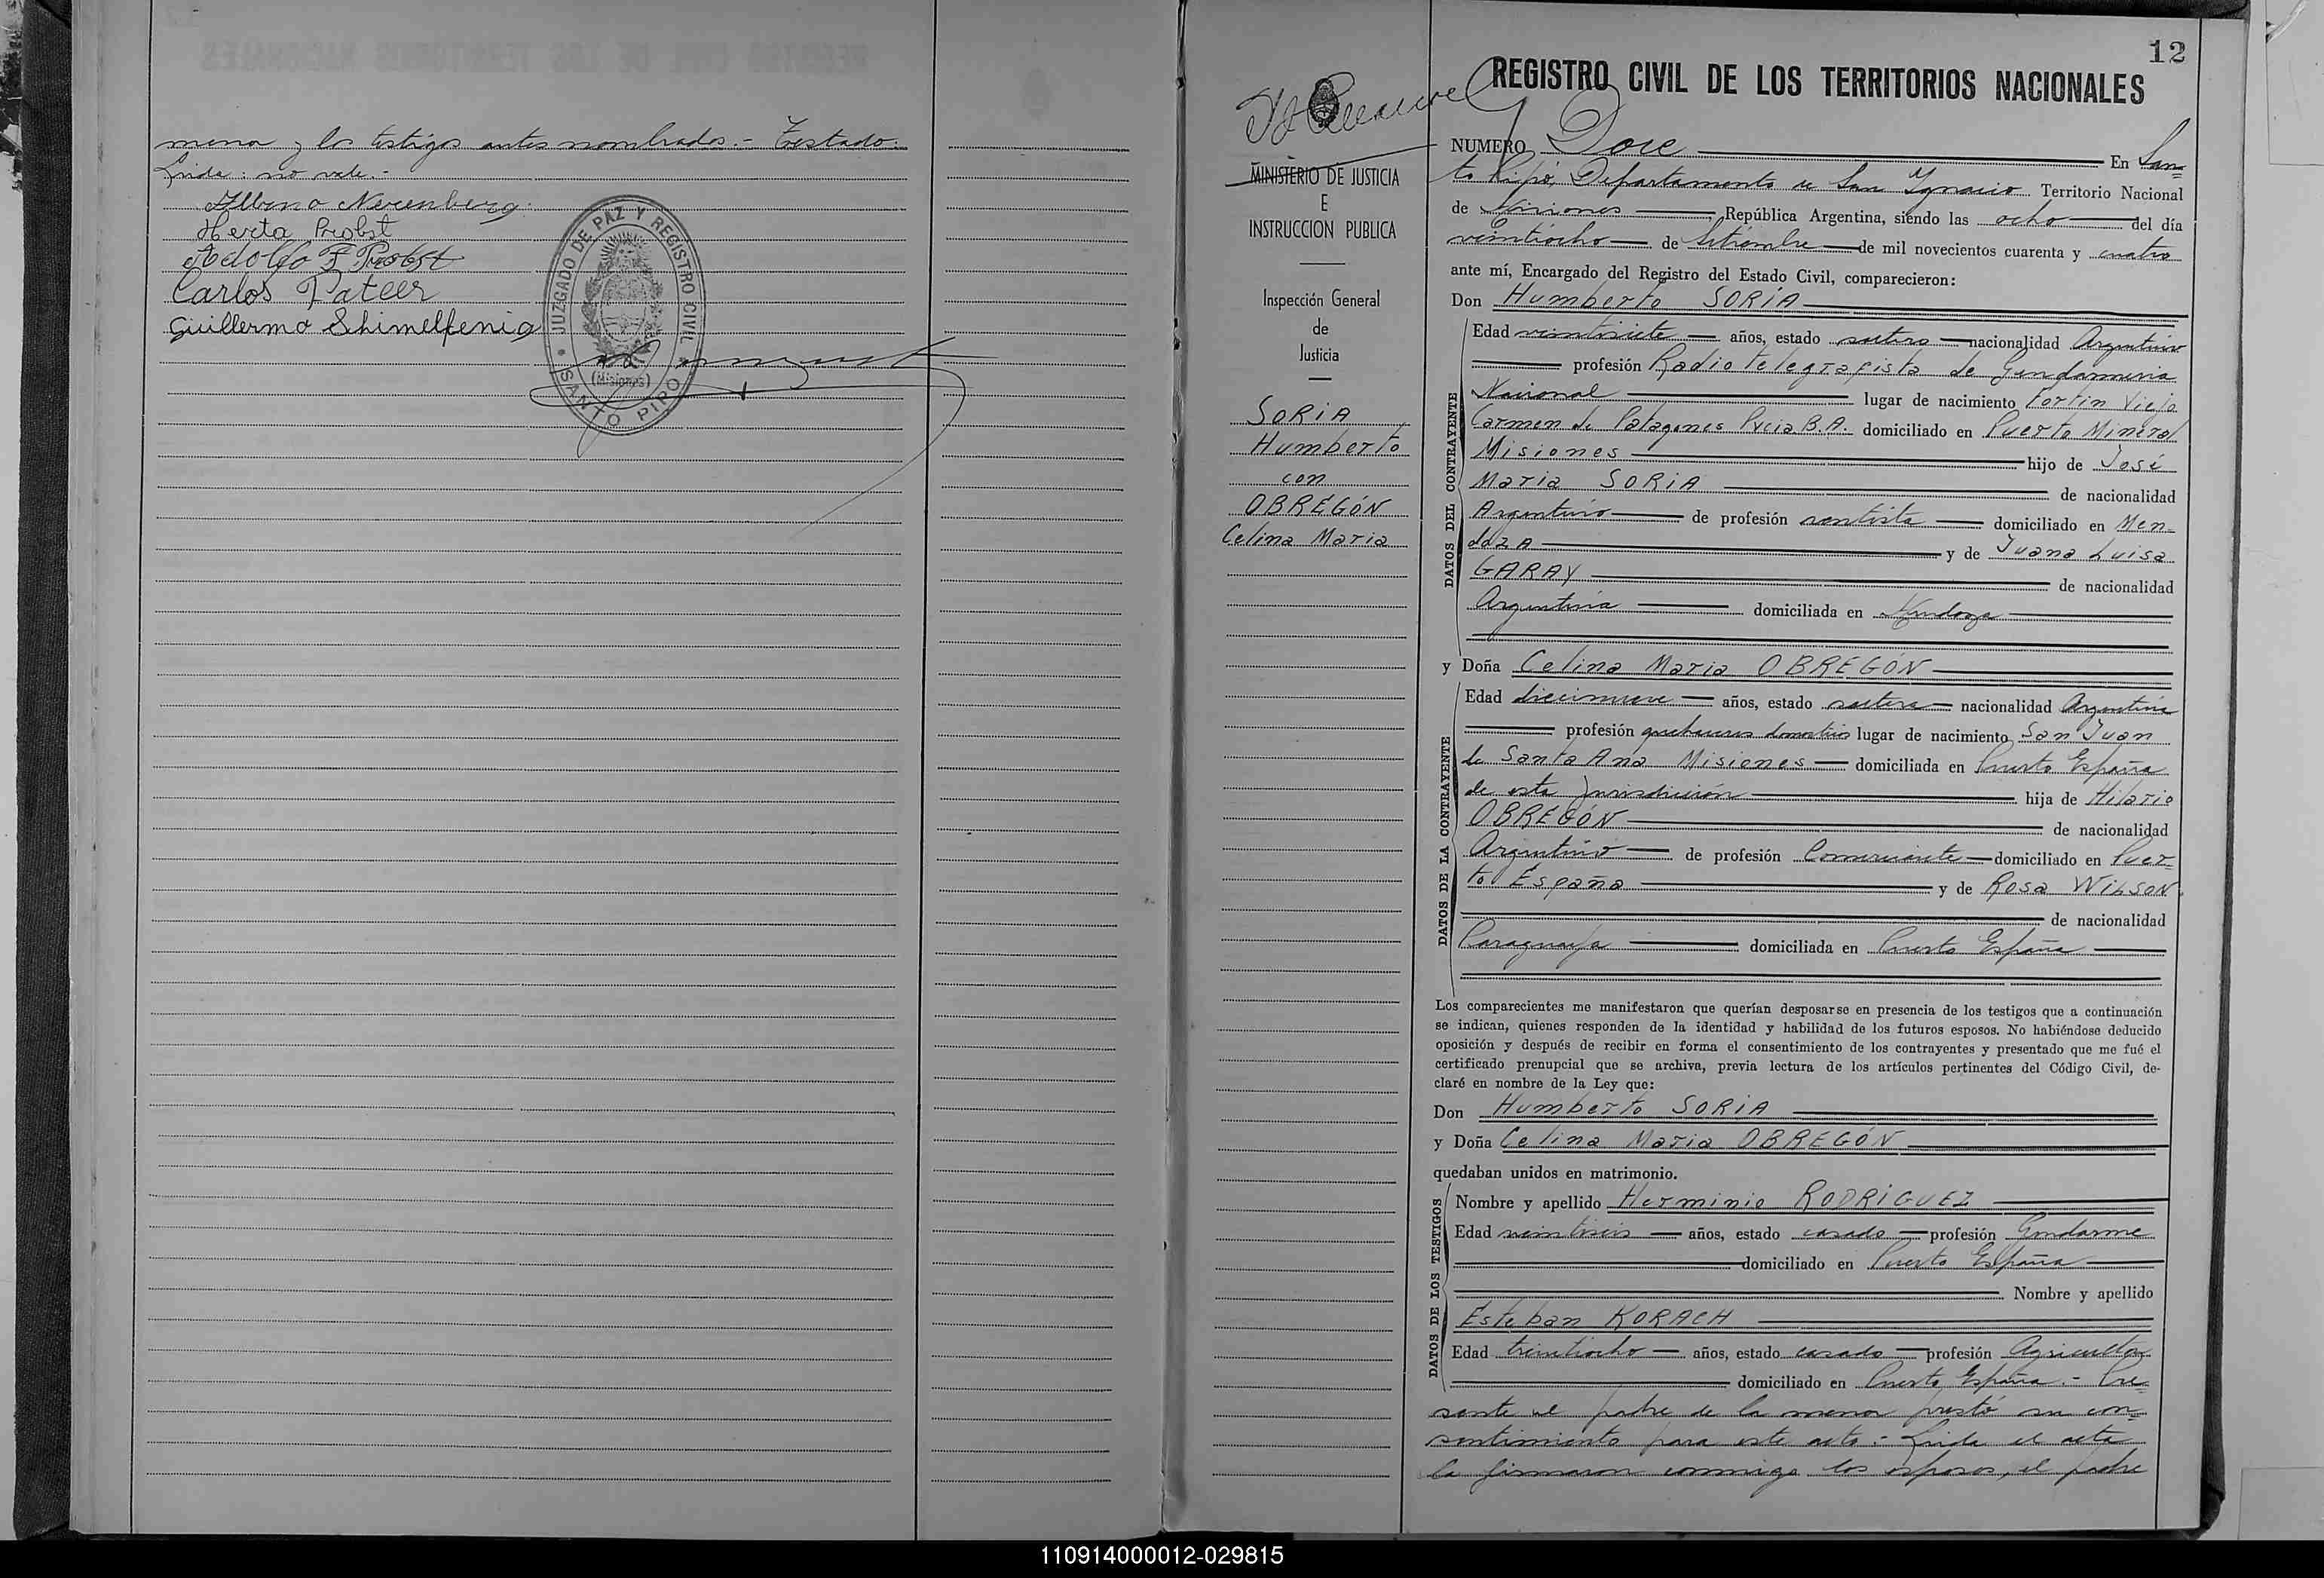 menor y los testigos antes nombrados.- Testado:
Leida: no vale.-
Albino Nerenberg
Herta Probst
Adolfo F Probst
Carlos Pateer
Guillermo Schimelfenig
JUZGADO DE PAZ Y REGISTRO CIVIL
(Misiones)
SANTO PIPÓ
12
REGISTRO CIVIL DE LOS TERRITORIOS NACIONALES
MINISTERIO DE JUSTICIA
E
INSTRUCCION PUBLICA
Inspección General
de
Justicia
SORIA
Humberto
con
OBREGÓN
Celina Maria
NUMERO Doce En San-
to Pipó, Departamento de San Ignacio Territorio Nacional
de Misiones, República Argentina, siendo las ocho del día
veintiocho de Setiembre de mil novecientos cuarenta y cuatro
ante mí, Encargado del Registro del Estado Civil, comparecieron:
Don Humberto SORIA
DATOS DEL CONTRAYENTE
Edad veintisiete años, estado soltero nacionalidad Argentino
profesión Radiotelegrafista de Gendarmeria
Nacional lugar de nacimiento Fortin Viejo
Carmen de Patagones Pvcia. B.A. domiciliado en Puerto Mineral
Misiones hijo de José
Maria SORIA de nacionalidad
Argentino de profesión rentista domiciliado en Men-
doza y de Juana Luisa
GARAY de nacionalidad
Argentina domiciliada en Mendoza
y Doña Celina Maria OBREGÓN
DATOS DE LA CONTRAYENTE
Edad diecinueve años, estado soltera nacionalidad Argentina
profesión quehaceres domésticos lugar de nacimiento San Juan
de Santa Ana Misiones domiciliada en Puerto España
de esta Jurisdicción hija de Hilario
OBREGÓN de nacionalidad
Argentino de profesión Comerciante domiciliado en Puer-
to España y de Rosa WILSON
de nacionalidad
Paraguaya domiciliada en Puerto España
Los comparecientes me manifestaron que querían desposarse en presencia de los testigos que a continuación
se indican, quienes responden de la identidad y habilidad de los futuros esposos. No habiéndose deducido
oposición y después de recibir en forma el consentimiento de los contrayentes y presentado que me fué el
certificado prenupcial que se archiva, previa lectura de los artículos pertinentes del Código Civil, de-
claré en nombre de la Ley que:
Don Humberto SORIA
y Doña Celina Maria OBREGÓN
quedaban unidos en matrimonio.
DATOS DE LOS TESTIGOS
Nombre y apellido Herminio RODRIGUEZ
Edad veintiseis años, estado casado profesión Gendarme
domiciliado en Puerto España
Nombre y apellido
Esteban KORACH
Edad treintiocho años, estado casado profesión Agricultor
domiciliado en Puerto España.- Pre-
sente el padre de la menor prestó su con-
sentimiento para este acto.- Leida el acta
la firmaron conmigo los esposos, el padre
110914000012-029815